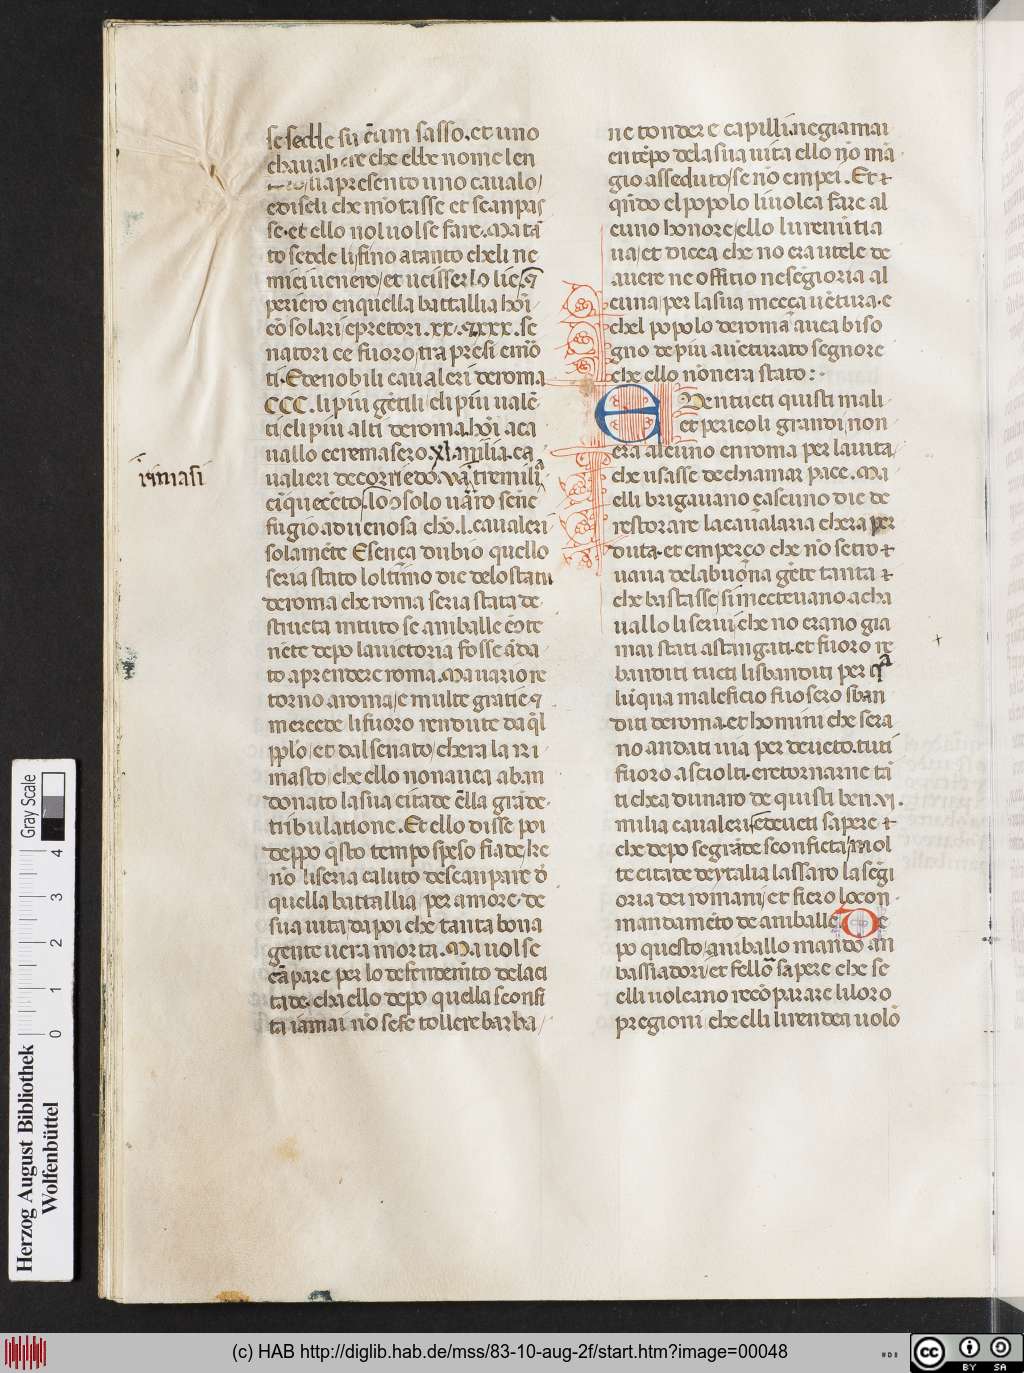 se sedde sū c̄um sasso. et uno
chauall iere che ebbe nome len
apresento uno caualo/
e diseli che mōtasse et scanpas
se. et ello nol uolse fare. Ma tā
to sedde li fino a tanto che li ne
mici uenero/ et ucisser lo lie/ ꝗ
periero en quella battallia hoī
cōsolari e pretori. xx. ꝗ xxx. se
natori ce fuoro/ tra presi e mō
ti. E de nobili caualeri de roma
CCC. li piu gētili/ eli piu ualē
ti eli piu alti de roma. hoī a ca
uallo ce remasero. xl. milia. ca
ualieri de cornedo. uā tremili
cīquecēto. lo ɔsolo uāro sen̄e
fugio ad uenosa chō. l. caualeri
solamēte E senҫa dubio quello
seria stato lo ltīmo die de lo stam
de roma che roma seria stata de
structa in tuto se aniballe cōte
nēte depo la uictoria fosse āda
to a prendere roma. Ma uario re
torno a roma/ e multe gratie ꝗ
mercede li fuoro rendute da q̄l
pplo/ et dal senato/ chera la ri
masto/ che ello non auea aban
donato la sua citade ēlla grāde
tribulatione. Et ello disse poi
deppo q̄sto tempo speso fiade/ ke
nō li seria caluto de scanpare d
quella battallia per amore de
sua uita da poi che tanta bona
gente uera morta. Ma uolse
cāpare per lo defendemīto de la ci
tade. cha ello depo quella sconfi
ta iamai nō se fe tollere barba/
irimasi
ne tondere capilli. ne giamai
en tēpo de la sua uita ello nō mā
gio asseduto/ se nō em pei. Et
qn̄do el popolo li uolea fare al
cuno honore/ ello li renūtia
ua/ et dicea che no era utele de
auere ne offitio ne segīoria al
cuna/ per la sua mecҫa uētura. e
chel popolo de roma auea biso
gno de piu auēturato segnore
che ello nō nera stato:
E Den tucti quisti mali
et pericoli grandi/ non
era alcuno en roma per la uita/
che usasse de chiamar pace. Ma
elli brigauano cascuno die de
restorare la cauālaria chera per
duta. et emperҫo che nō se tro
uaua de la buōna gēte tanta
che bastasse/ si mecteuano a cha
uallo li serui/ che no erano gia
mai stati a stangati. et fuoro re
banditi tucti li sbanditi per q
luīqua maleficio fuosero sban
diti de roma. et homini che sera
no andati uia per deueto. tuti
fuoro asciolti. e retornarne tā
ti che adunaro de quisti ben. vi.
milia caualeri. E deueti sapere
che depo segrāde sconficta/ mol
te citade de ytalia lassaro la segī
oria dei romani/ et fiero lo con
mandamēto de aniballe. De
po questo/ aniballo mando an
bassiadori/ et fello sapere che se
elli uoleano recōparare li loro
pregioni che elli li rendea uolō
Herzog August Bibliothek
Wolfenbüttel
0 1 2 3 4
Gray Scale
(c) HAB http://diglib.hab.de/mss/83-10-aug-2f/start.htm?image=00048
cc
BY SA